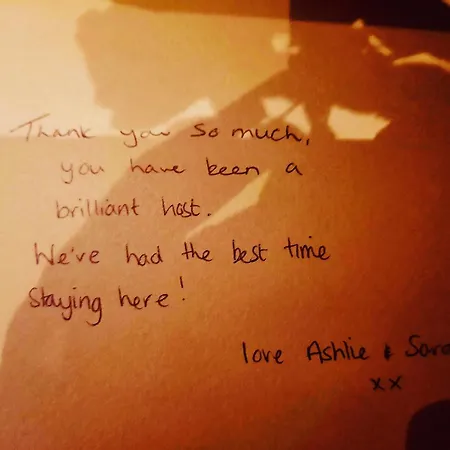 Thank you so much,
you have been a
brilliant host.
We've had the best time
staying here!
love Ashlie &
xx